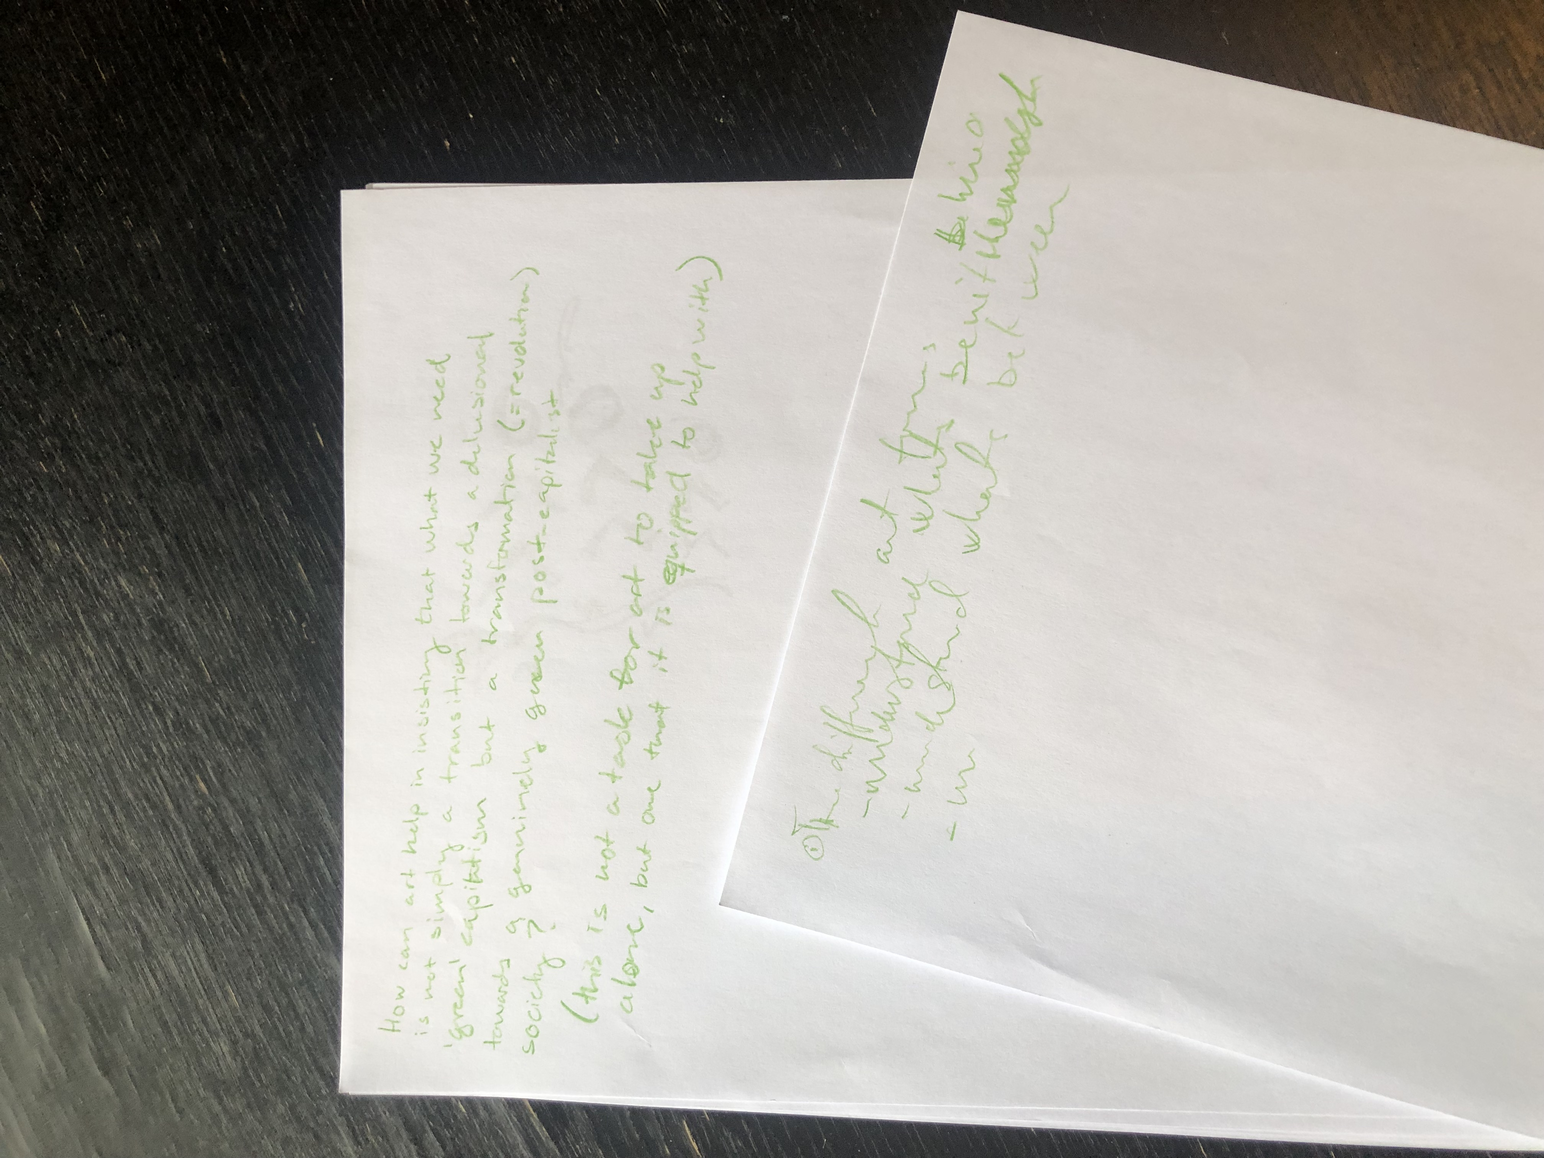 How can art help in insisting that what we need
is not simply a transition towards a delusional
'green' capitalism but a transformation (=revolution)
towards a genuinely green post-capitalist
society?
(this is not a task for art to take up
alone, but one that it is equipped to help with)
The different art forms
- understand what's behind
- understand what's
between